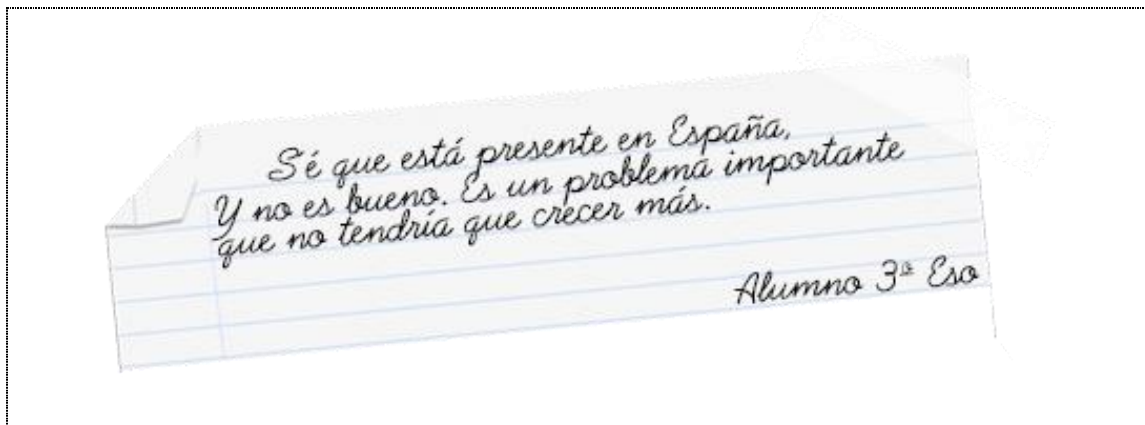 Sé que está presente en España,
Y no es bueno. Es un problema importante
que no tendría que crecer más.
Alumno 3º Eso